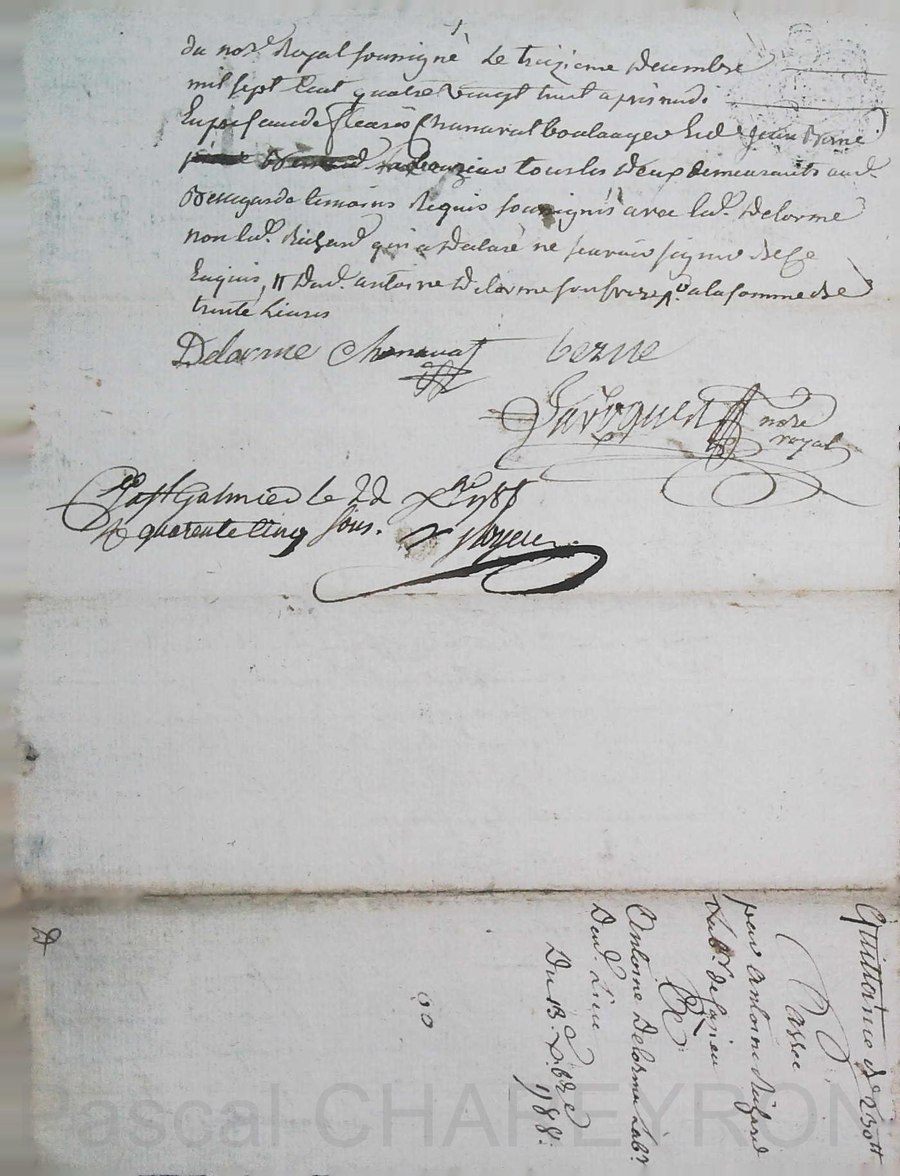 du nore Royal soussigné Le treizieme decembre
mil sept cent quatre vingt huit apres midi
En presence de Chanavat boulanger & de jean Berne
tous les deux demeurants aud.
Bellegarde temoins Requis soussignés avec led. Delorme
non led. Richard qui a declaré ne scavoir signer de ce
Enquis, dud. antoine Delorme a la somme de
trente Livres
Delorme Chanavat berne
nore
royal
a st Galmier le 22 xbre 1788
R quarente cinq sous.
Quittance de 230tt
Passée
par antoine Richard
Lab.
De
Antoine Delorme Lab.r
Dud. Lieu
Du 13 Xbre
1788.
Pascal CHAPEYRON